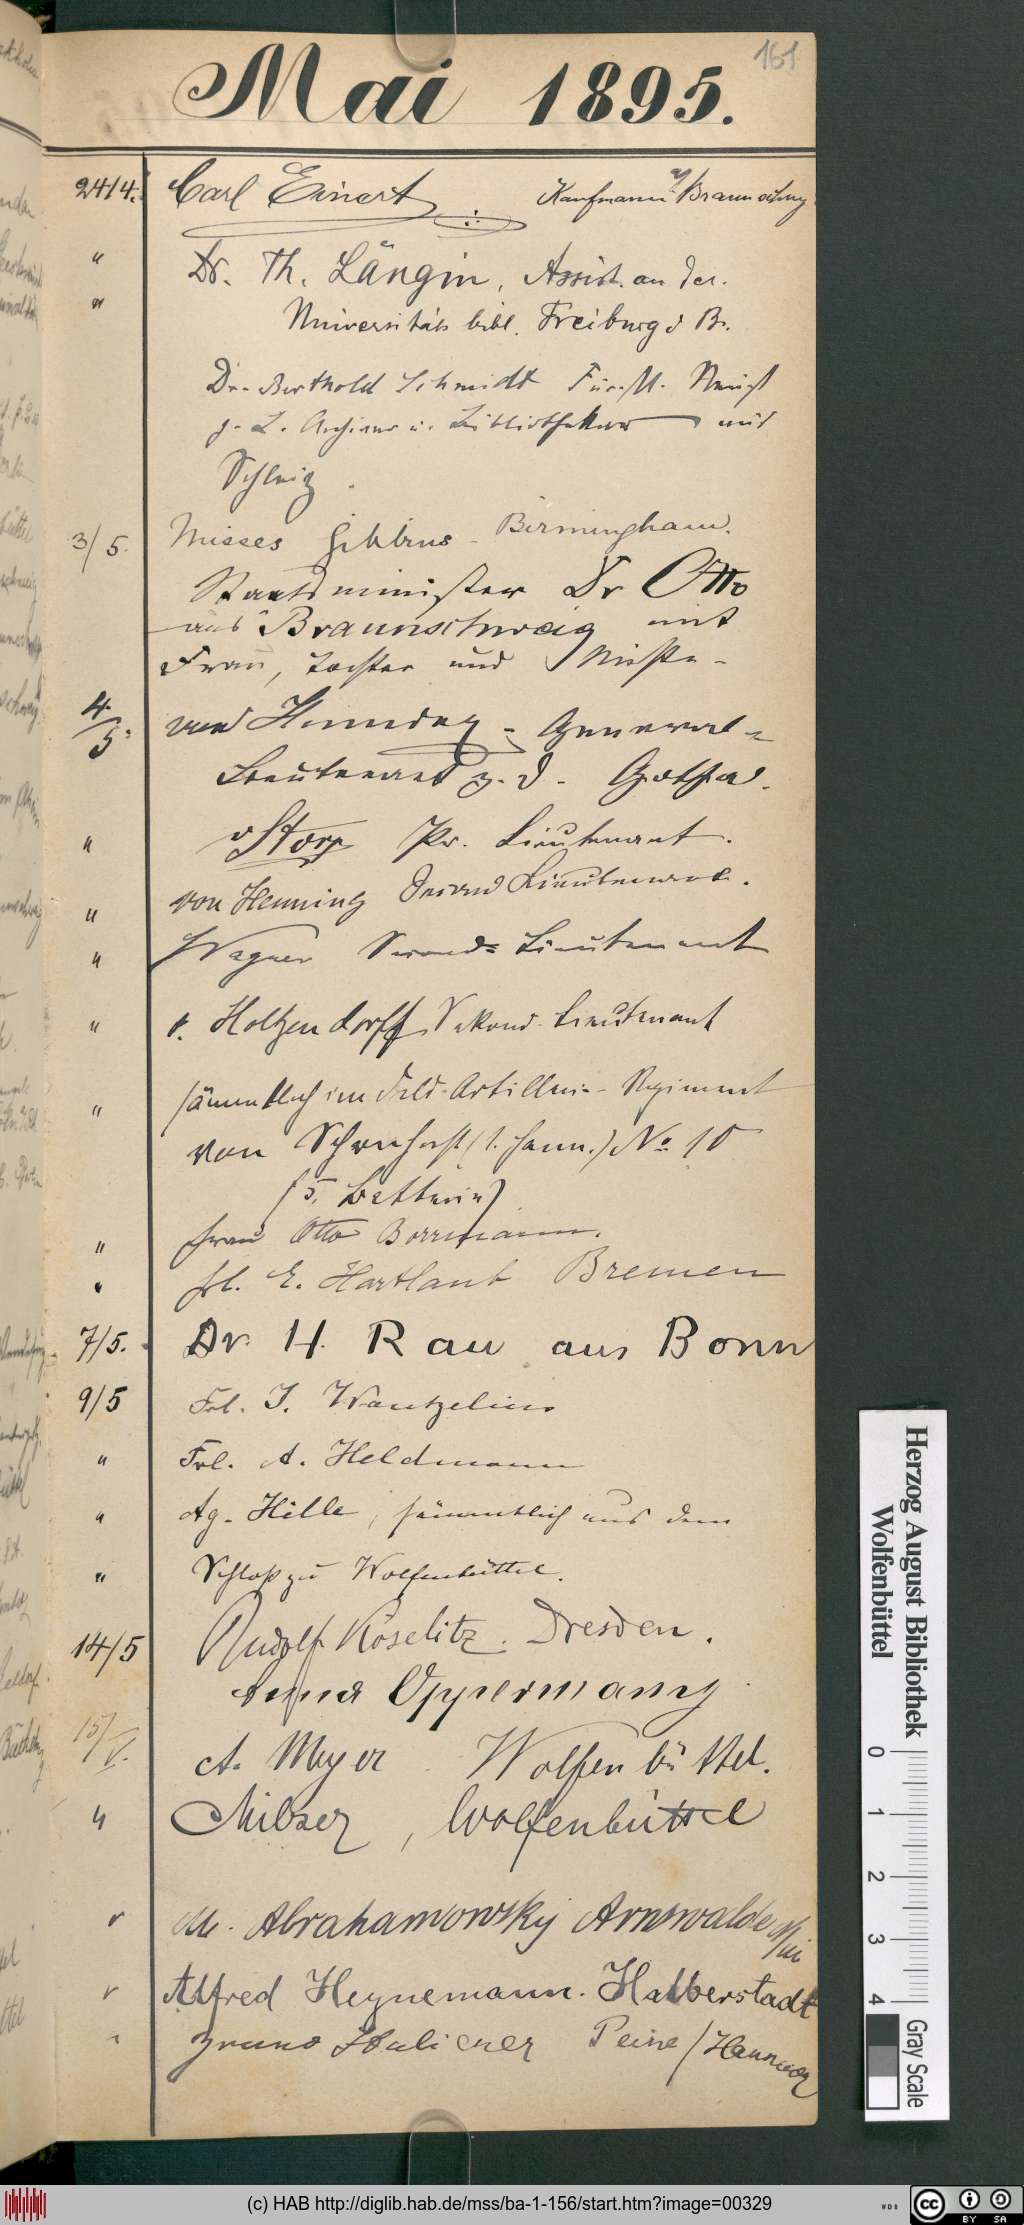 161
Mai 1895.
24/4. Carl Einert Kaufmann a/ Braunschwg
" Dr. Th. Längin, Assist. an der
" Universitäts bibl. Freiburg i B.
Dr. Berthold Schmidt Fürstl. Reuß
j. L. Archivar u. Bibliothekar aus
Schleiz.
3/5. Misses Gibbins - Birmingham.
Staatsminister Dr Otto
aus Braunschweig mit
Frau, Tochter und Nichte.
4/5. von - General-
Lieutenant z. D. Gotha.
" Pr. Lieutenant.
" von Henning Second Lieutenant.
" Wagner Second-Lieutenant
" v. Holtzendorff Sekond-Lieutenant
" sämmtlich im Feld-Artillerie-Regiment
von Scharnhorst (1. Hann.) No 10
(5. Batterie)
" Frau Otto Borrmann.
" Frl. E. Hartlaub Bremen
7/5. Dr. H. Rau aus Bonn
9/5 Frl. J. Wantzelius
" Frl. A. Heldmann
" Ag. Hille, sämmtlich aus dem
" Schloß zu Wolfenbüttel.
14/5 Rudolf Köselitz. Dresden.
Anna Oppermann
15/V. A. Meyer Wolfenbüttel.
" Milzer, Wolfenbüttel
" M. Abrahamowsky Arnswalde
" Alfred Heynemann. Halberstadt
" Bruno Peine / Hannover
Herzog August Bibliothek
Wolfenbüttel
0 1 2 3 4
Gray Scale
(c) HAB http://diglib.hab.de/mss/ba-1-156/start.htm?image=00329
WDB
cc BY SA